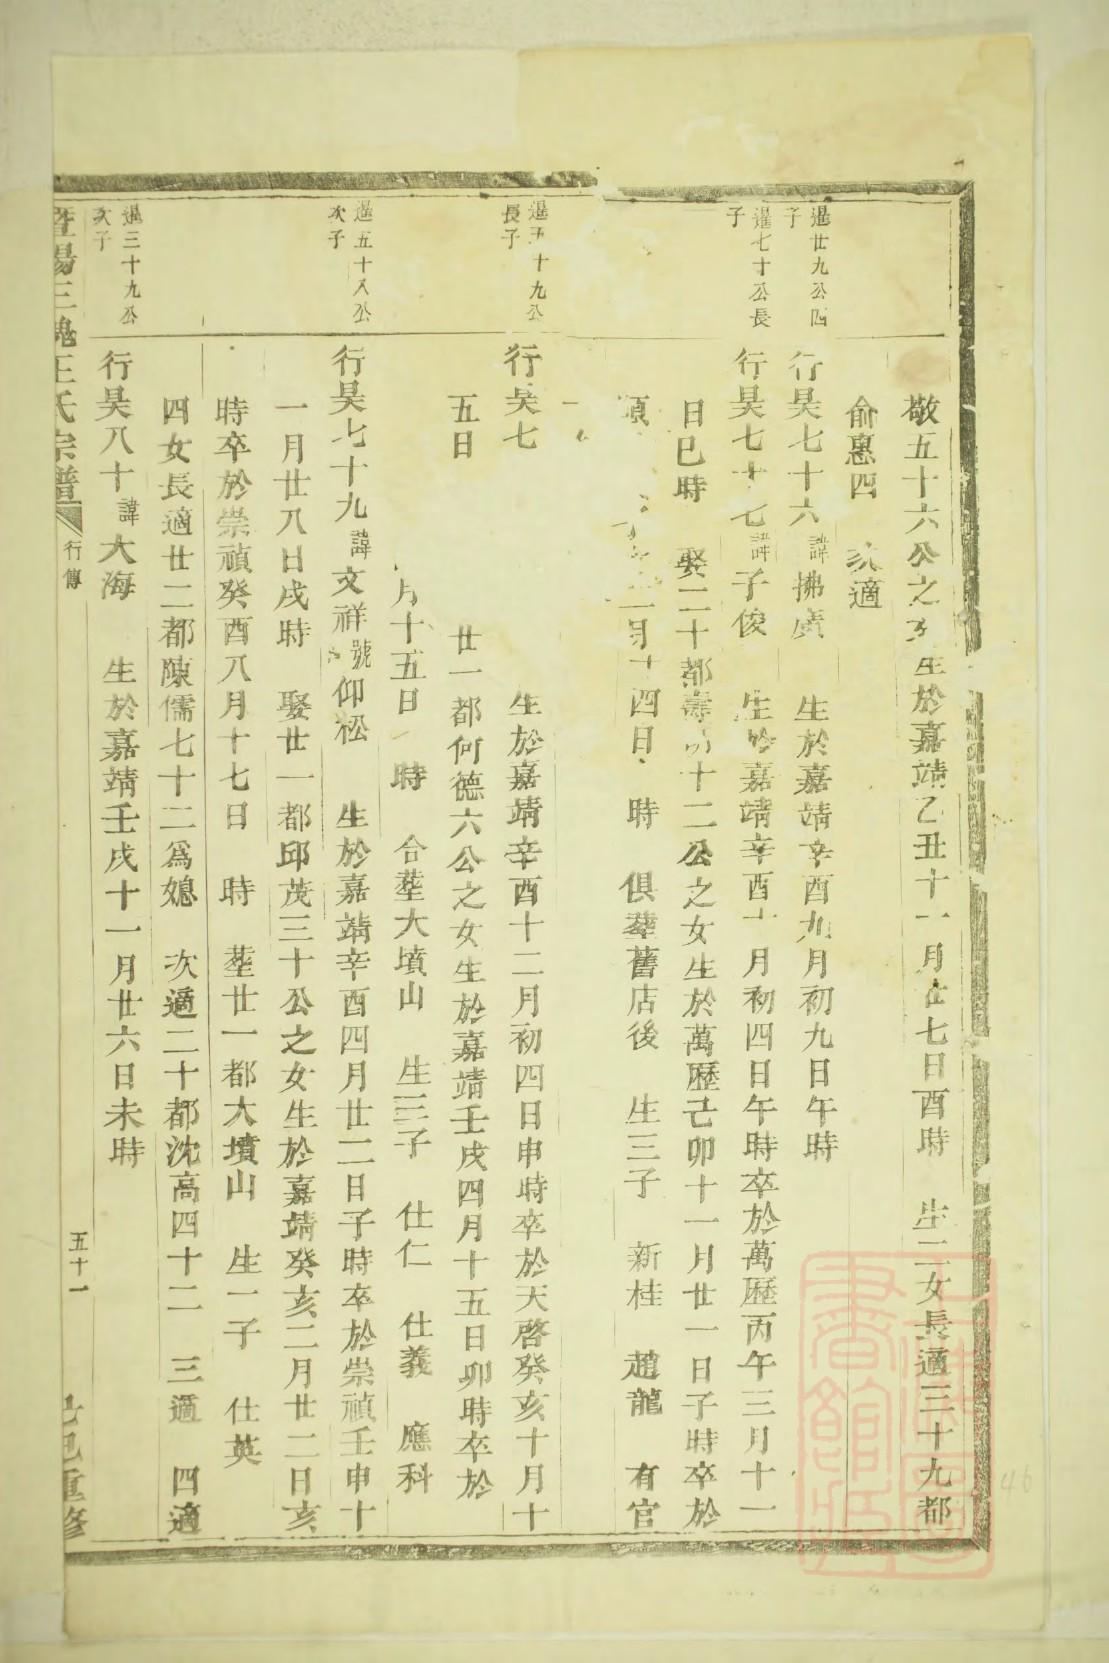 敬五十六公之 生於嘉靖乙丑十一月廿七日酉時 生二女長適三十九都
俞惠四 次適
暹廿九公四
子
行昊七十六諱拂廣 生於嘉靖辛酉九月初九日午時
暹七十公長
子
行昊七十七諱子俊 生於嘉靖辛酉十月初四日午時卒於萬歷丙午三月十一
日巳時 娶二十都壽 十二公之女生於萬歷己卯十一月廿一日子時卒於
月十四日 時 俱塟舊店後 生三子 新桂 趙龍 有官
暹五十九公
長子
行昊七 生於嘉靖辛酉十二月初四日申時卒於天啓癸亥十月十
五日 廿一都何德六公之女生於嘉靖壬戌四月十五日卯時卒於
月十五日 時 合塟大墳山 生三子 仕仁 仕義 應科
暹五十八公
次子
行昊七十九諱文祥號仰松 生於嘉靖辛酉四月廿二日子時卒於崇禎壬申十
一月廿八日戌時 娶廿一都邱茂三十公之女生於嘉靖癸亥二月廿二日亥
時卒於崇禎癸酉八月十七日 時 塟廿一都大墳山 生一子 仕英
四女長適廿二都陳儒七十二為媳 次適二十都沈高四十二 三適 四適
暹三十九公
次子
行昊八十諱大海 生於嘉靖壬戌十一月廿六日未時
暨陽三槐王氏宗譜 行傳 五十一 己巳重修